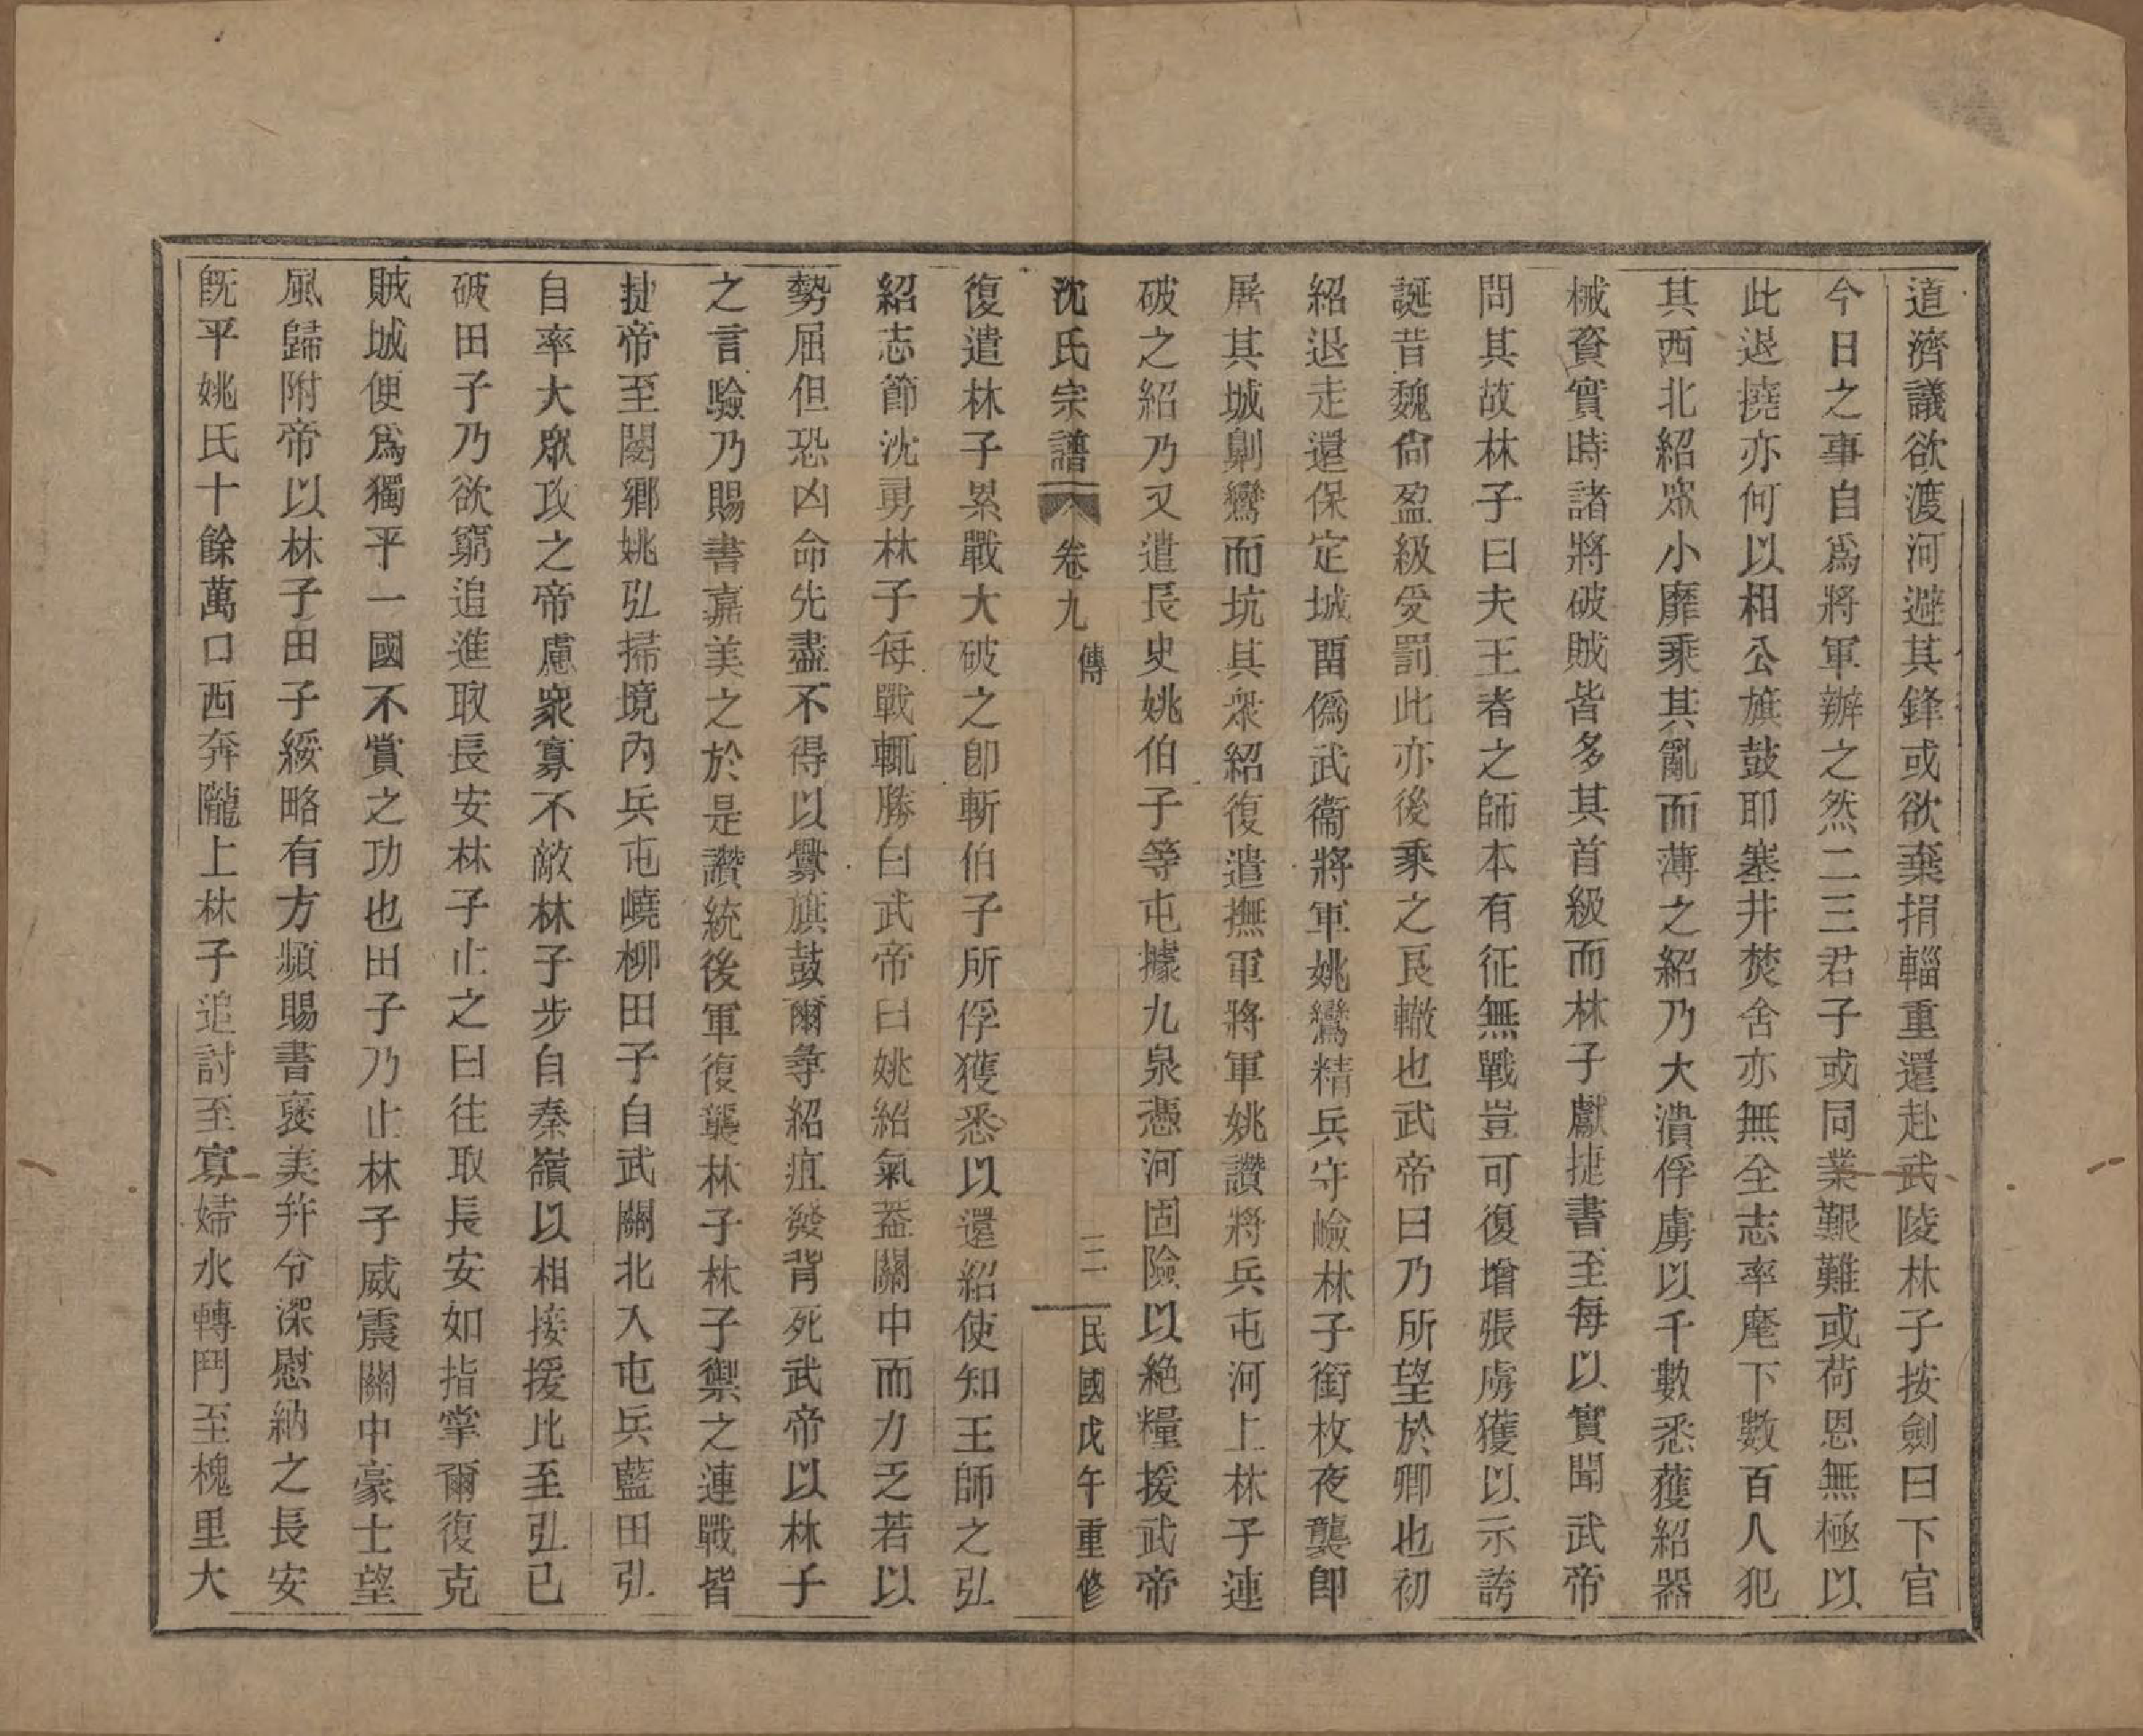 道濟議欲渡河避其鋒或欲棄捐輜重還赴武陵林子按劍曰下官
今日之事自爲將軍辦之然二三君子或同業艱難或荷恩無極以
此退撓亦何以相公旗鼓耶塞井焚舍亦無全志率麾下數百人犯
其西北紹眾小靡乘其亂而薄之紹乃大潰俘虜以千數悉獲紹器
械資實時諸將破賊皆多其首級而林子獻捷書至每以實聞武帝
問其故林子曰夫王者之師本有征無戰豈可復增張虜獲以示誇
誕昔魏尙盈級受罰此亦後乘之良轍也武帝曰乃所望於卿也初
紹退走還保定城畱僞武衞將軍姚鸞精兵守嶮林子銜枚夜襲卽
屠其城劓鸞而坑其衆紹復遣撫軍將軍姚讚將兵屯河上林子連
破之紹乃又遣長史姚伯子等屯據九泉憑河固險以絶糧援武帝
沈氏宗譜 卷九 傳 三 民國戊午重修
復遣林子累戰大破之卽斬伯子所俘獲悉以還紹使知王師之弘
紹志節沈勇林子每戰輒勝白武帝曰姚紹氣葢關中而力乏若以
勢屈但恐凶命先盡不得以釁旗鼓爾尋紹疽發背死武帝以林子
之言驗乃賜書嘉美之於是讚統後軍復襲林子林子禦之連戰皆
捷帝至閿鄉姚弘掃境內兵屯嶢柳田子自武關北入屯兵藍田弘
自率大眾攻之帝慮衆寡不敵林子步自秦嶺以相接援比至弘已
破田子乃欲窮追進取長安林子止之曰往取長安如指掌爾復克
賊城便爲獨平一國不賞之功也田子乃止林子威震關中豪士望
風歸附帝以林子田子綏略有方頻賜書褒美并令深慰納之長安
旣平姚氏十餘萬口西奔隴上林子追討至寡婦水轉鬥至槐里大